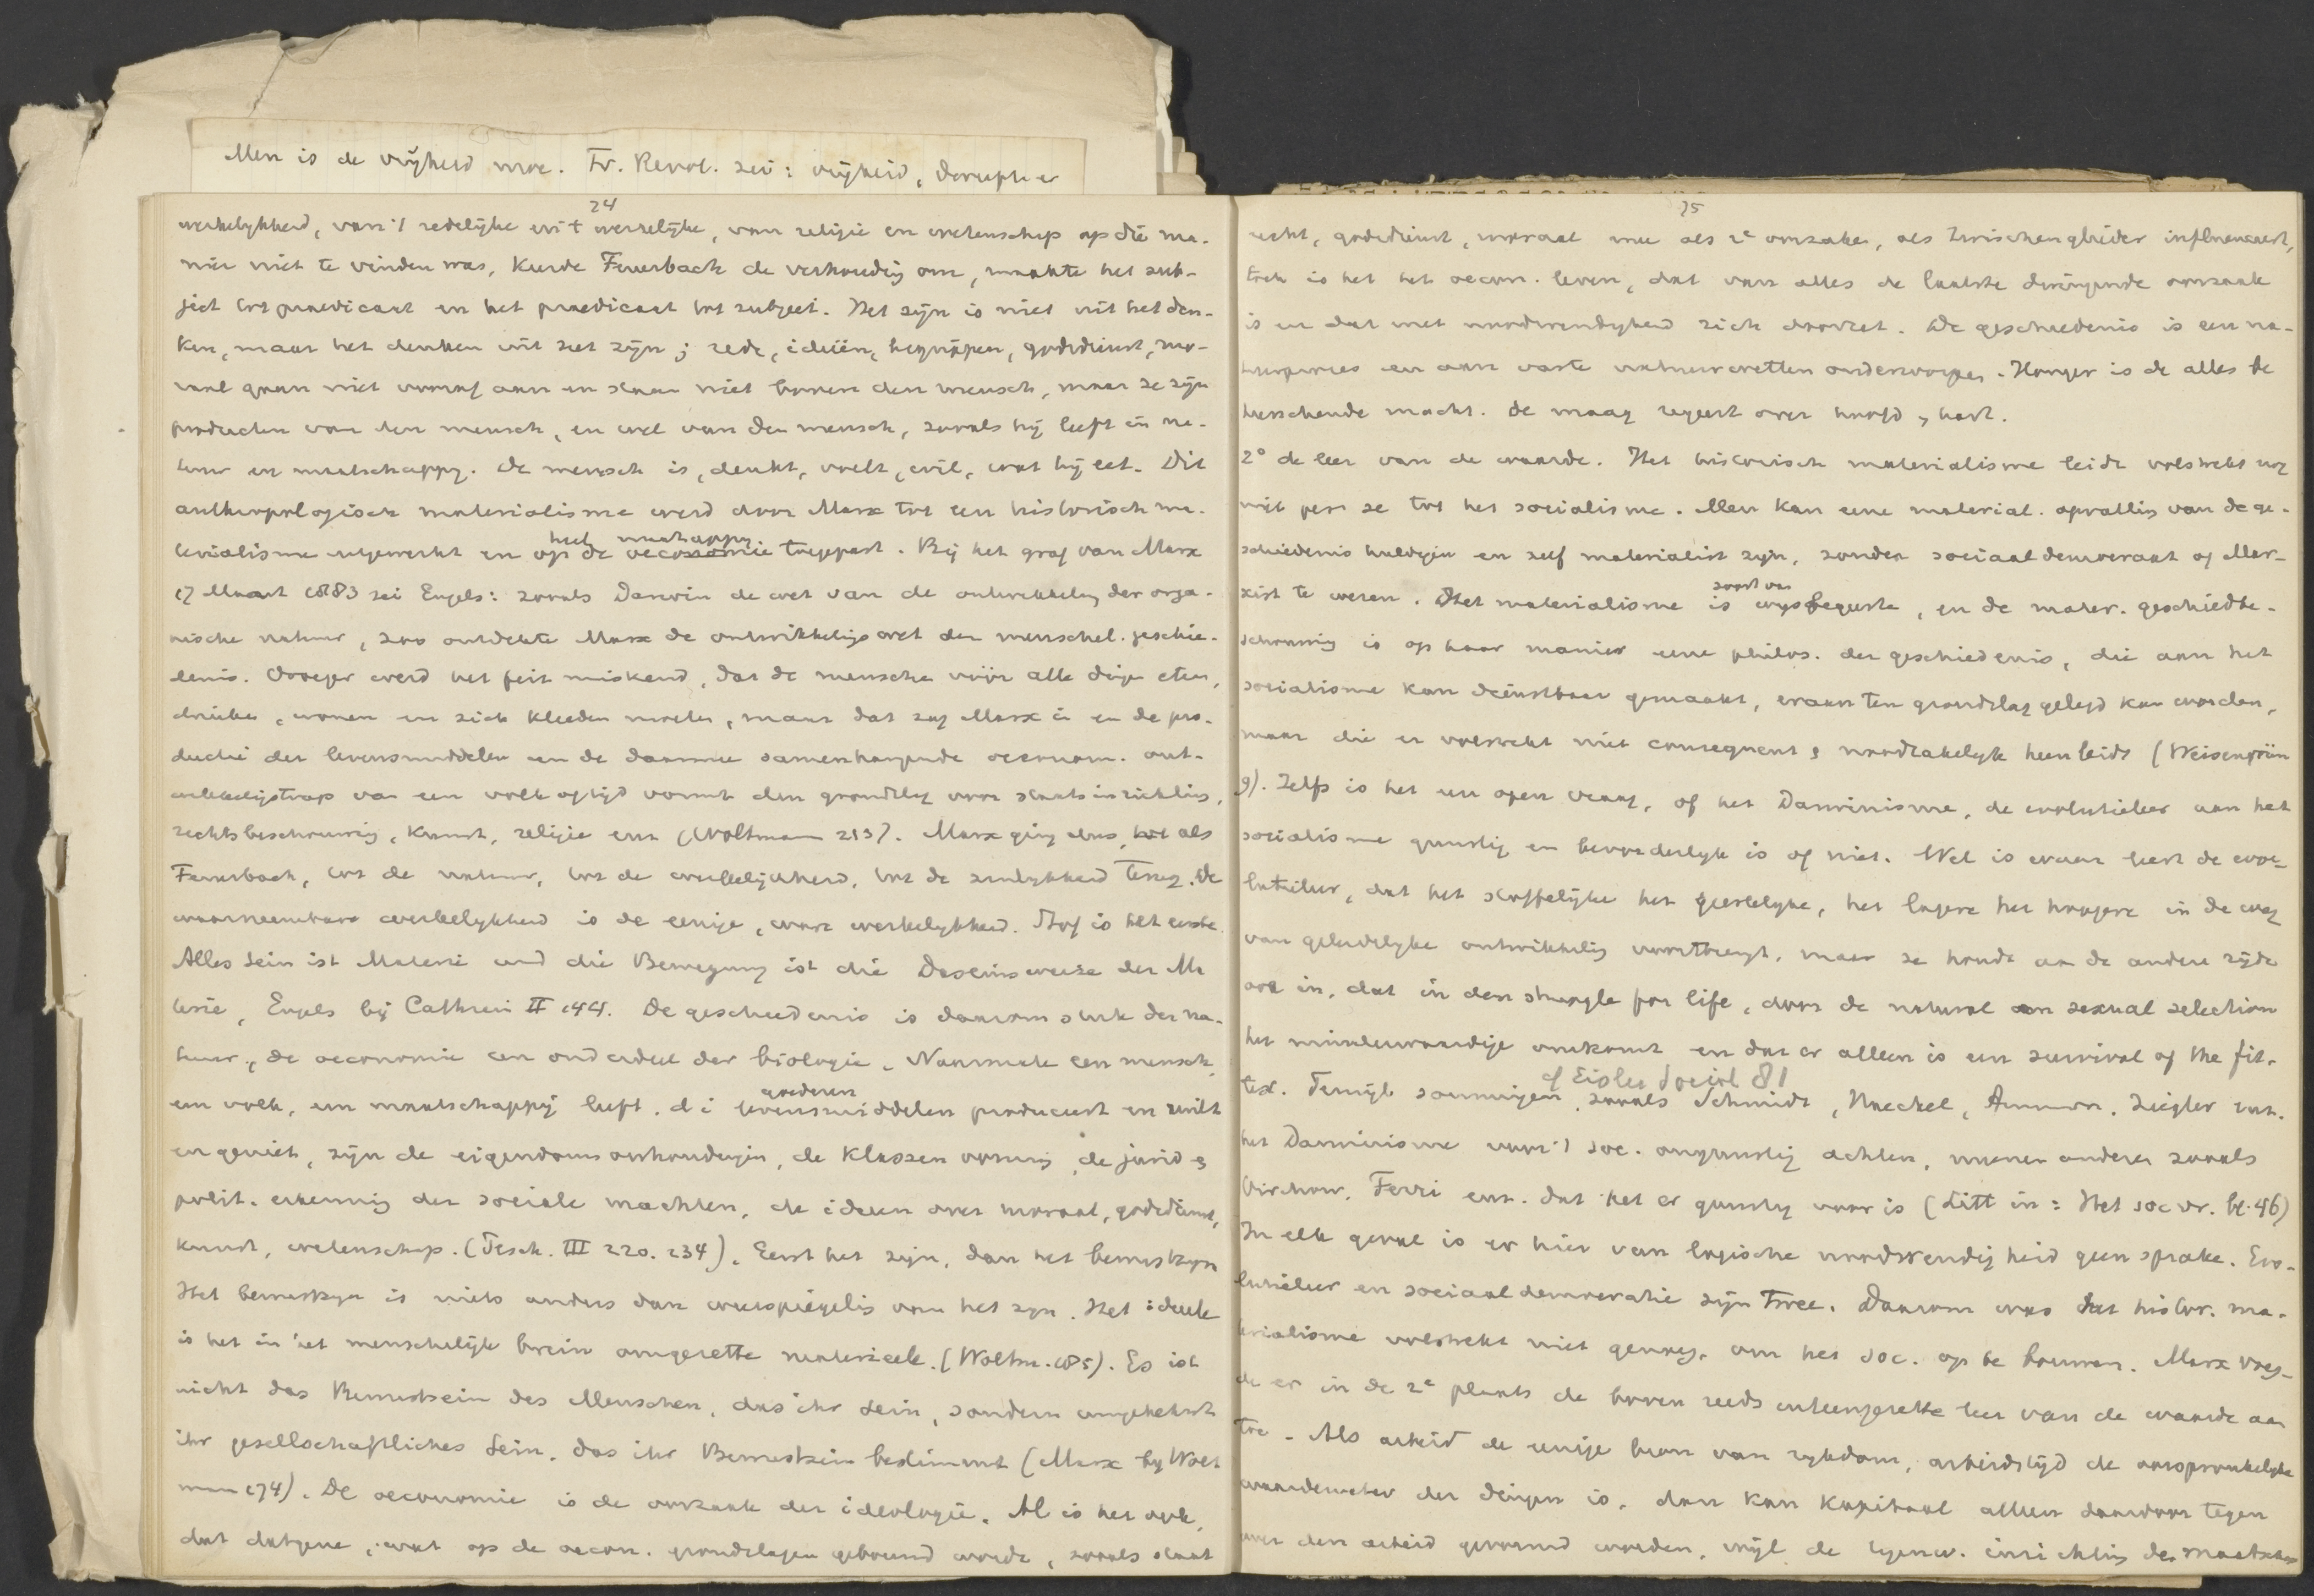 Men is de vrijheid moe. Fr. Revol. zei: vrijheid,
24
werkelykheid, van 't redelijke uit 't werkelijke, van religie en wetenschap op die ma-
nier niet te vinden was, keerde Feuerbach de verhouding om, maakte het sub-
ject tot praedicaat en het praedicaat tot subject. Het zijn is niet uit het den-
ken, maar het denken uit het zijn; rede, ideeën, begrippen, godsdienst, mo-
raal gaan niet vooraf aan en staan niet boven den mensch, maar ze zijn
producten van den mensch, en wel van den mensch, zooals hij leeft in na-
tuur en maatschappy. De mensch is, denkt, voelt, wil, wat hij eet. Dit
anthropologisch materialisme werd door Marx tot een historisch ma-
heel maatschappy
terialisme uitgewerkt en op de oeconomie toegepast. Bij het graf van Marx
17 Maart 1883 zei Engels: zooals Darwin de wet van de ontwikkeling der orga-
nische natuur, zoo ontdekte Marx de ontwikkelingswet der menschel. geschie-
denis. Vroeger werd het feit miskend, dat de menschen vóór alle dingen eten,
drinken, wonen en zich kleeden moeten, maar dat zag Marx in en de pro-
ductie der levensmiddelen en de daarmee samenhangende oeconom. ont-
wikkelingstrap van een volk altijd vormt den grondslag voor staatsinrichting,
rechtsbeschouwing, kunst, religie enz (Woltmann 213). Marx ging dus, als
Feuerbach, tot de natuur, tot de werkelijkheid, tot de zinlykheid terug. De
waarneembare werkelykheid is de eenige, ware werkelykheid. Stof is het eerste.
Alles Sein ist Materie und die Bewegung ist die Daseinsweise der Ma
terie, Engels bij Cathrein II 144. De geschiedenis is daarom stuk der na-
tuur, de oeconomie een onderdeel der biologie. Naarmate een mensch,
goederen
een volk, een maatschappij leeft, d i levensmiddelen produceert en ruilt
en geniet, zijn de eigendomsverhoudingen, de klassenvorming, de jurid &
polit. erkenning der sociale machten, de ideen over moraal, godsdienst,
kunst, wetenschap. (Pesch. III 220. 234). Eerst het zijn, dan het bewustzyn
Het bewustzyn is niets anders dan weerspiegeling van het zyn. Het ideele
is het in het menschelijk brein omgezette materieele. (Woltm. 185). Es ist
nicht das Bewustsein des Menschen, das ihr Sein, sondern umgekehrt
ihr gesellschaftliches Sein, das ihr Bewustsein bestimmt (Marx by Wolt
mann 174). De oeconomie is de oorzaak der ideologie. Al is het ook,
dat datgene, wat op de oecon. grondslagen gebouwd wordt, zooals staat
25
recht, godsdienst, moraal mee als 2e oorzaken, als Zwischenglieder influenceert,
toch is het het oecon. leven, dat van alles de laatste dringende oorzaak
is en dat met noodwendigheid zich doorzet. De geschiedenis is een na-
tuurproces en aan vaste natuurwetten onderworpen. Honger is de alles be
heerschende macht. De maag regeert over hoofd & hart.
2° de leer van de waarde. Het historisch materialisme leidt volstrekt nog
niet per se tot het socialisme. Men kan eene material. opvatting van de ge-
schiedenis huldigen en zelf materialist zyn, zonder sociaaldemocraat of Mar-
soort van
xist te wezen. Het materialisme is wysbegeerte, en de mater. geschiedbe-
schouwing is op haar manier eene philos. der geschiedenis, die aan het
socialisme kan dienstbaar gemaakt, eraan ten grondslag gelegd kan worden,
maar die er volstrekt niet consequent & noodzakelyk heen leidt (Weisengrün
9). Zelfs is het een open vraag, of het Darwinisme, de evolutieleer aan het
socialisme gunstig en bevorderlyk is of niet. Wel is waar leert de evo-
lutieleer, dat het stoffelijke het geestelyke, het lagere het hoogere in de weg
van geleidelyke ontwikkeling voortbrengt, maar ze houdt aan de andere zijde
ook in, dat in den struggle for life, door de natural en sexual selection
het minderwaardige omkomt en dat er alleen is een survival of the fit-
cf Eisler Sociol 81
test. Terwijl sommigen, zooals Schmidt, Haeckel, Ammon, Ziegler enz.
het Darwinisme voor 't soc. ongunstig achten, meenen anderen zooals
Virchow, Ferri enz. dat het er gunstig voor is (Litt in: Het soc vr. bl. 46)
In elk geval is er hier van logische noodwendigheid geen sprake. Evo-
lutieleer en sociaaldemocratie zijn twee. Daarom was het histor. ma-
terialisme volstrekt niet genoeg, om het soc. op te bouwen. Marx voeg-
de er in de 2e plaats de boven reeds uiteengezette leer van de waarde aan
toe. Als arbeid de eenige bron van rykdom, arbeidstijd de oorspronkelyke
waardemeter der dingen is, dan kan kapitaal alleen daardoor tegen
over den arbeid gevormd worden, wijl de tegenw. inrichting der maatschap